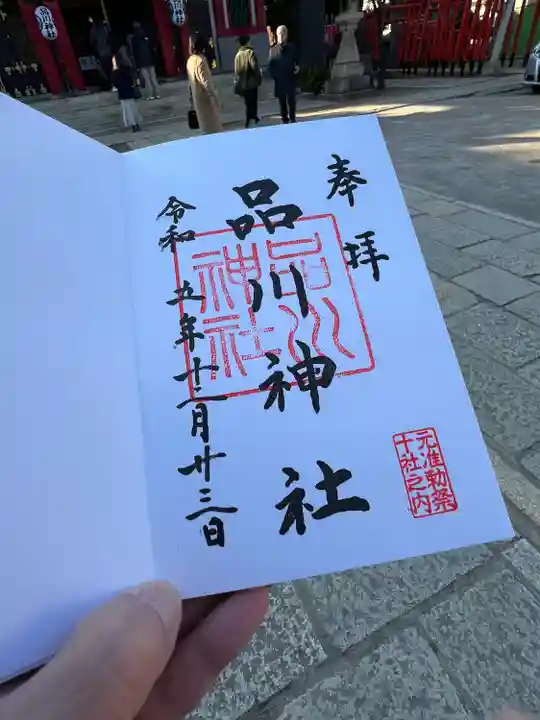 奉拝
品川神社
令和五年十二月廿三日
品川神社
元准勅祭
十社之内
品川神社